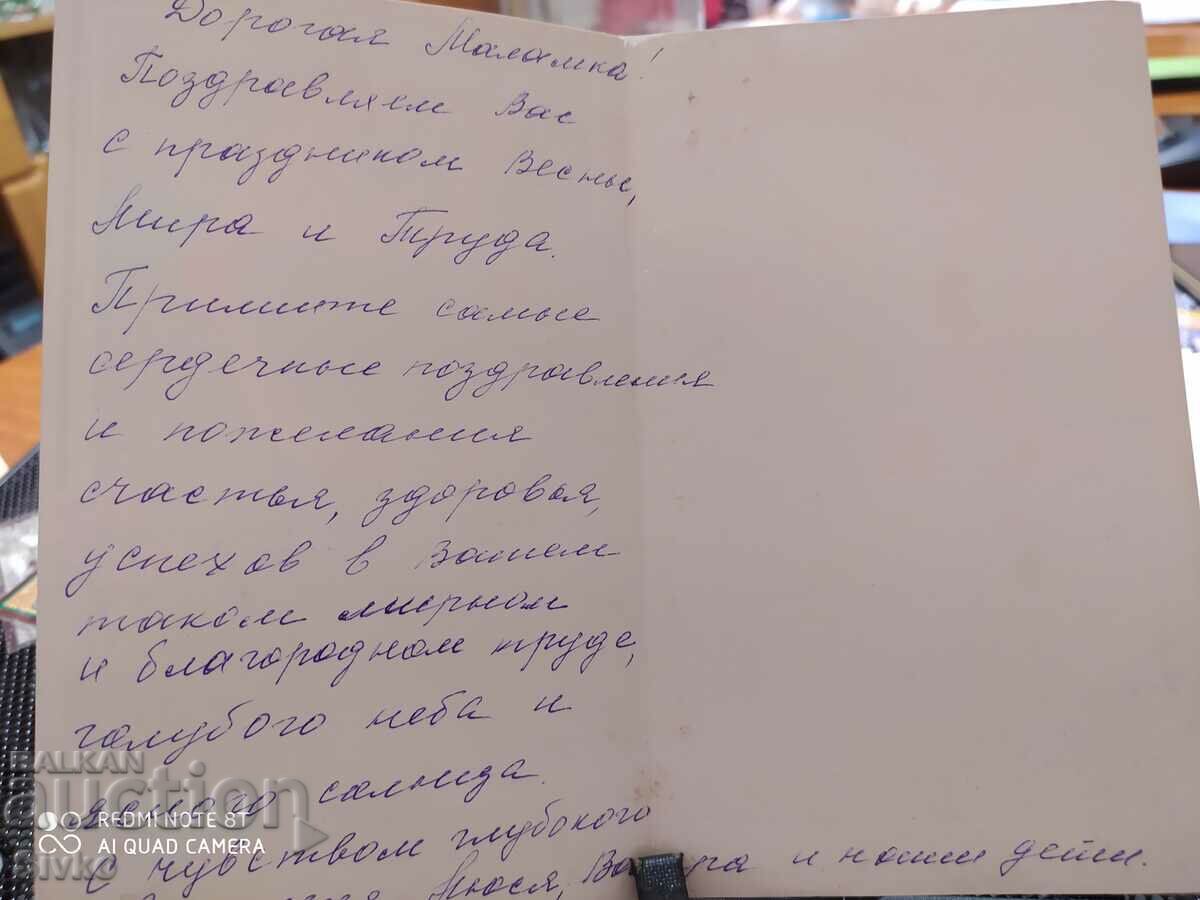 Дорогая Маламка!
Поздравляем Вас
с праздником Весны,
Мира и Труда.
Примите самые
сердечные поздравления
и пожелания
счастья, здоровья,
успехов в Вашем
таком мирном
и благородном труде,
голубого неба и
ясного солнца.
с чувством глубокого
Люся, и наши дети.
BALKAN
auction
REDMI NOTE 8T
AI QUAD CAMERA
sivko